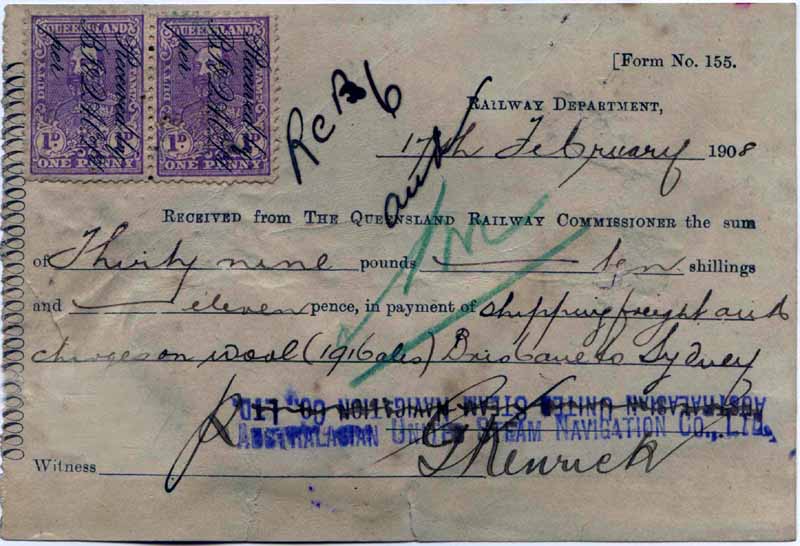 QUEENSLAND QUEENSLAND
DUTY DUTY
1D 1D
ONE PENNY ONE PENNY
[Form No. 155.
RAILWAY DEPARTMENT,
17th February 1908
RECEIVED from THE QUEENSLAND RAILWAY COMMISSIONER the sum
of Thirty nine pounds ten shillings
and eleven pence, in payment of shipping freight and
charges on wool (191 bales) Brisbane to Sydney
AUSTRALASIAN UNITED STEAM NAVIGATION CO., LTD.
AUSTRALASIAN UNITED STEAM NAVIGATION CO., LTD.
Witness